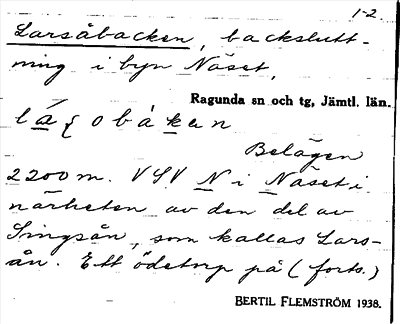 1-2.
Larsåbacken, backslutt-
ning i byn Näset,
Ragunda sn och tg, Jämtl. län.
Belägen
2200 m. VSV N i Näset i
närheten av den del av
Singsån, som kallas Lars-
ån. Ett ödetorp på (forts.)
BERTIL FLEMSTRÖM 1938.